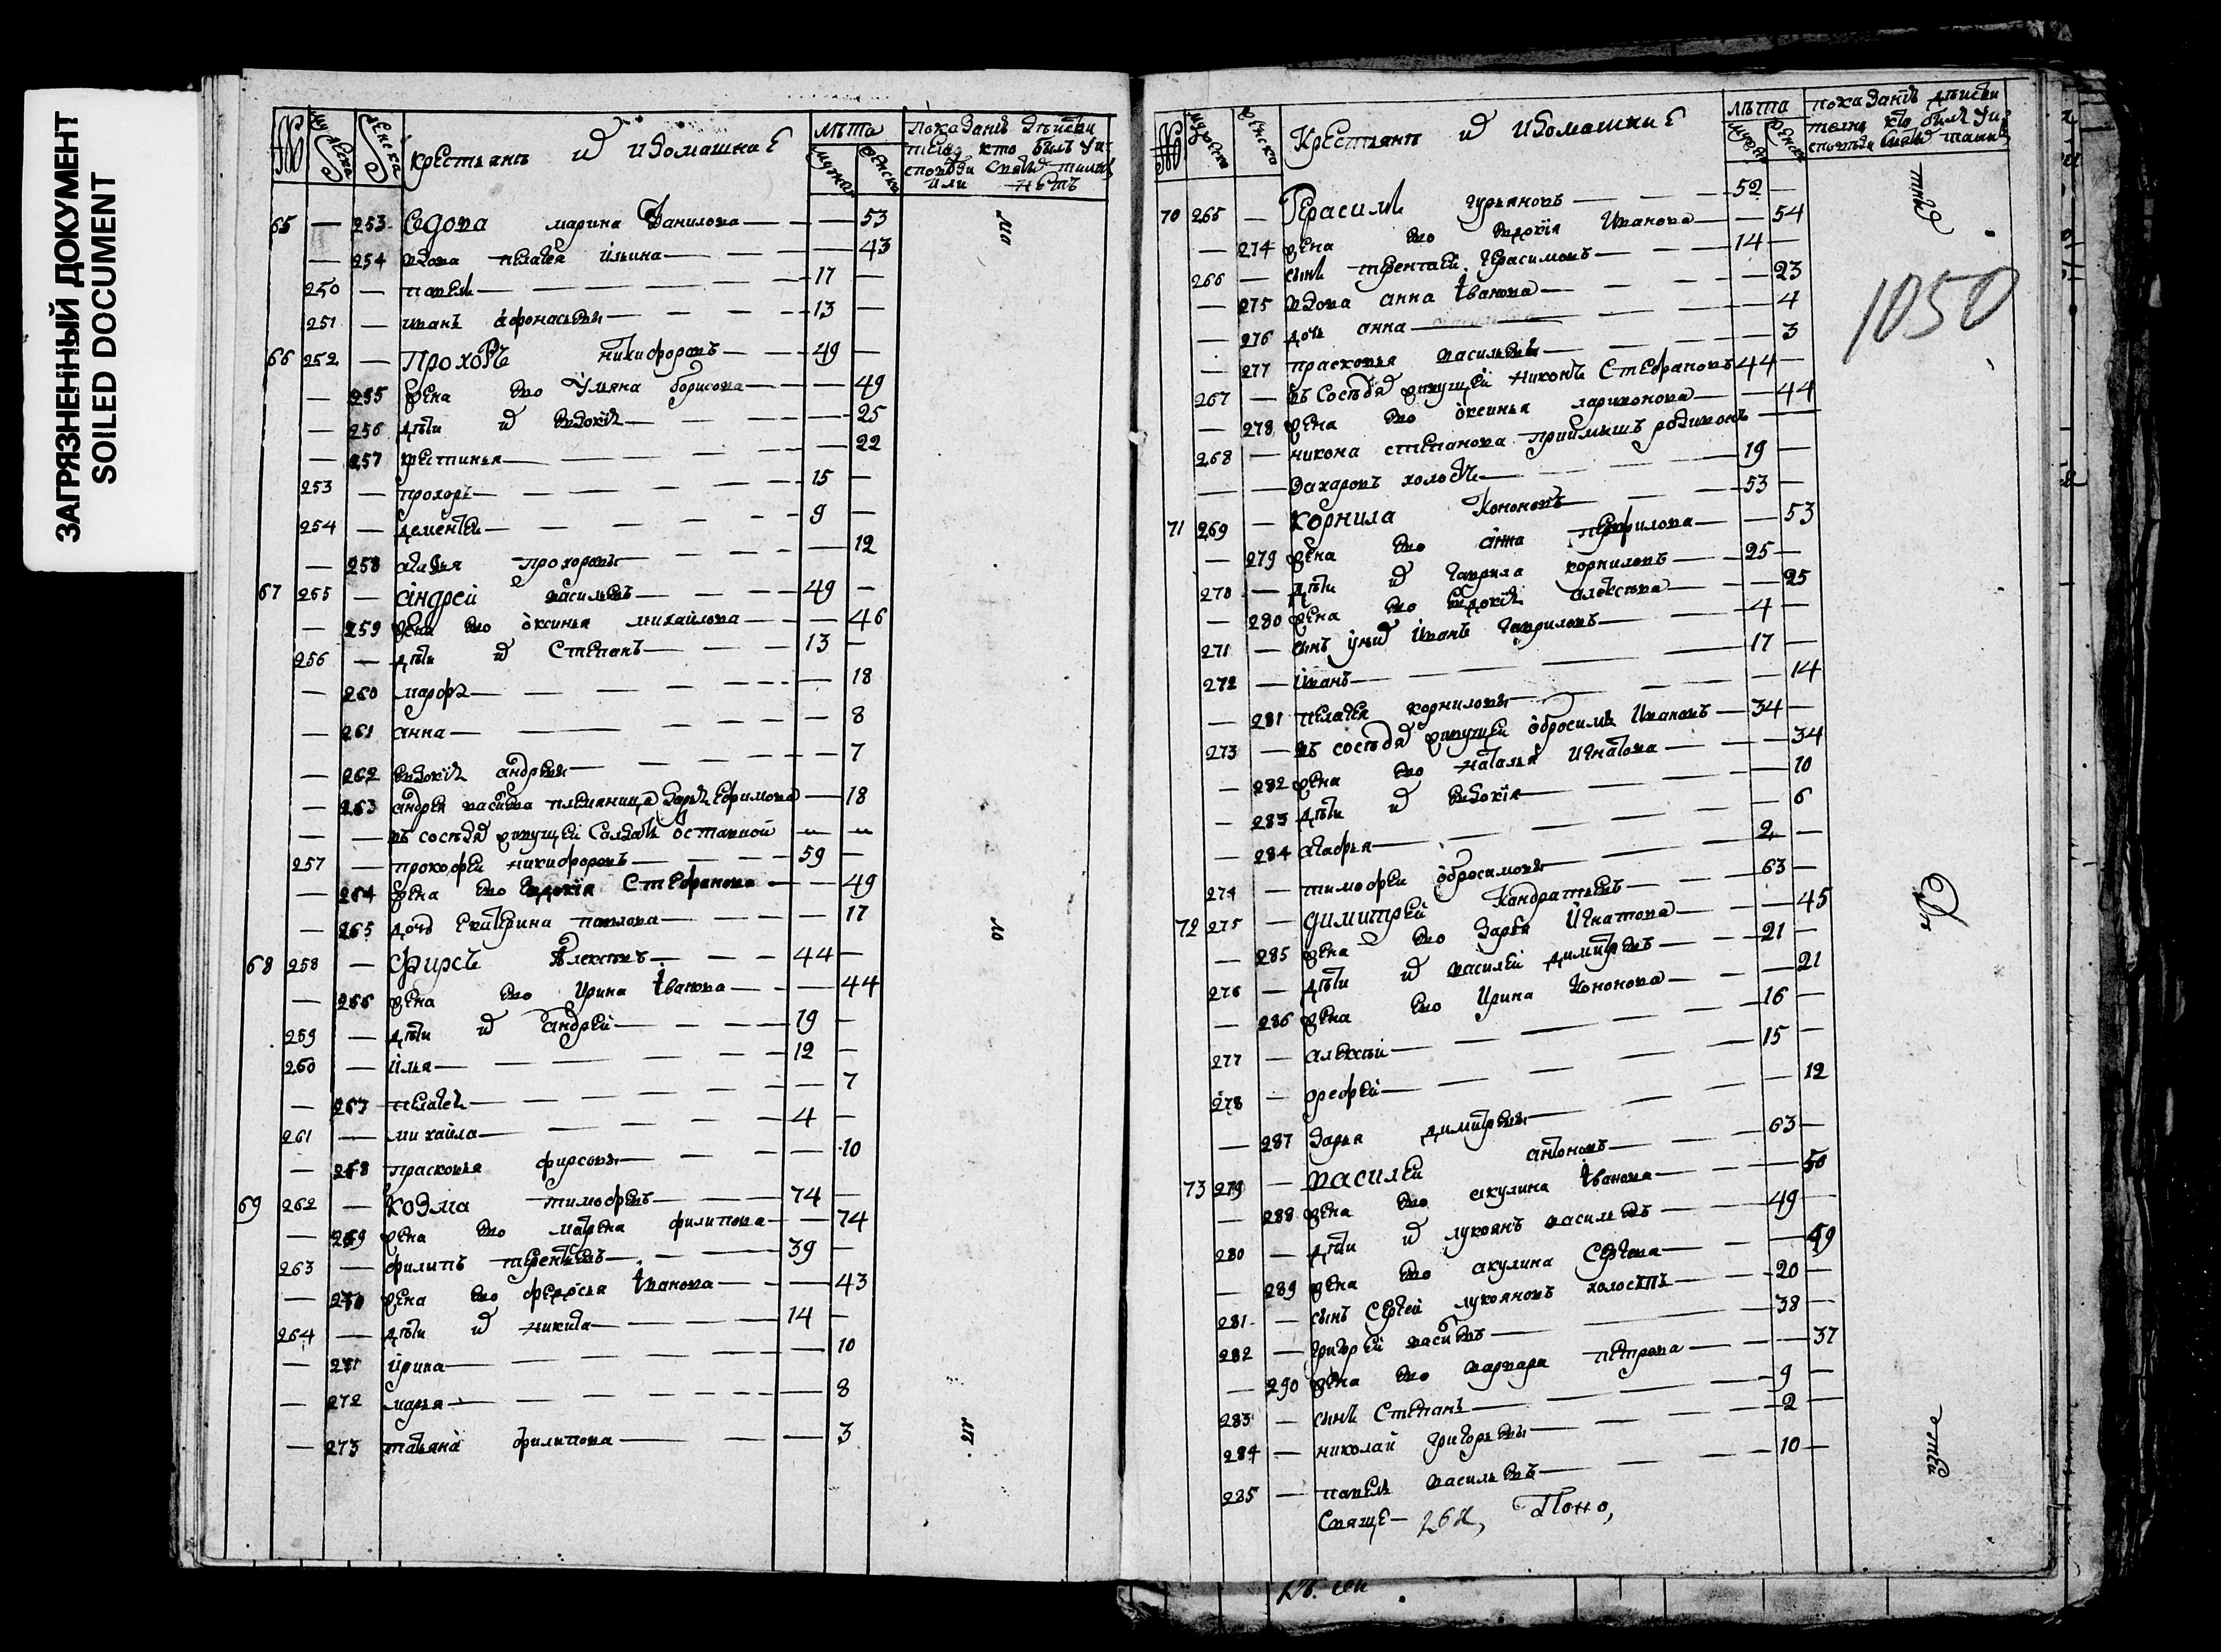 ЗАГРЯЗНЕННЫЙ ДОКУМЕНТ
SOILED DOCUMENT
№ мужеска женска крестьянъ и их домашние лѣта
мужска женска
показанiе дѣйстви
кто былъ у ис
повѣди
или нетъ
65 — 253 Седова марина Данилова — 53
— 254 вдова пелагея ильина — 43
250 — павелъ — 17 —
251 — иванъ афонасьевы — 13 —
66 252 — Прохоръ никифоровъ — 49 —
— 255 жена ево ульяна борисова — 49
— 256 дѣти их евдокия — 25
— 257 фетинья — 22
253 — прохоръ — 15 —
254 — дементей — 9 —
— 258 агафья прохоровы — 12
67 255 — андрей васильевъ — 49 —
— 259 жена ево оксинья михайлова — 46
256 — дѣти их Степанъ — 13 —
— 260 марфа — 18
— 261 анна — 8
— 262 евдокия андреевы — 7
— 263 андрея племянница дарья ефимова — 18
— — въ соседях живущей Салдатъ оставной
257 — прокофей никифоровъ — 59 —
— 264 жена ево евдокия Стефанова — 49
— 265 дочь екатерина павлова — 17
68 258 — Фирсъ Алексѣевъ — 44 —
— 266 жена ево Ирина Иванова — 44
259 — дѣти их андрей — 19 —
260 — илья — 12 —
— 267 пелагея — 7
261 — михайла — 4 —
— 268 прасковья фирсовы — 10
69 262 — козма тимофеевъ — 74 —
— 269 жена ево матрена филипова — 74
263 — филипъ терентьевъ — 39 —
— 270 жена ево федосья Иванова — 43
264 — дѣти их никита — 14 —
— 271 ирина — 10
— 272 марья — 8
— 273 татьяна филипова — 3
№ мужска женска Крестьянъ и их домашние лѣта
мужска женска
показанiе дѣйстви
кто былъ у ис
повѣди
1050
70 265 — Герасимъ гурьяновъ — 52 —
— 274 жена ево евдокiя Иванова — 54
266 — сынъ терентей Герасимовъ — 14 —
— 275 вдова анна Иванова — 23
— 276 дочь анна — 4
— 277 прасковья васильевы — 3
267 — въ Сосѣдях живущей никонъ Стефановъ 44 —
— 278 жена ево оксинья ларионова — 44
268 — никона степанова приимышъ родионъ
— — Захаровъ холостъ — 19 —
71 269 — Корнила Кононовъ — 53 —
— 279 жена ево анна — 53
270 — дѣти их гаврила корниловъ — 25 —
— 280 жена ево евдокия алексѣева — 25
271 — сынъ у них иванъ гавриловъ — 4 —
272 — иванъ — 17 —
— 281 пелагея корниловы — 14
273 — въ состѣдях живущей обросимъ Ивановъ — 34 —
— 282 жена ево наталья Игнатова — 34
— 283 дѣти их евдокiя — 10
— 284 агафья — 6
274 — тимофей обросимовы — 2 —
72 275 — димитрей Кандратьевъ — 63 —
— 285 жена ево дарья Игнатова — 45
276 — дѣти их василей димитревъ — 21 —
— 286 жена ево Ирина Кононова — 21
277 — алексѣй — 16 —
278 — ерефей — 15 —
— 287 дарья димитревы — 12
73 279 — василей антоновъ — 63 —
— 288 жена ево акулина Иванова — 50
280 — дѣти их лукоянъ васильевъ — 49 —
— 289 жена ево акулина Сергеева — 49
281 — сынъ Сергей лукояновъ холостъ — 20 —
282 — григорей васильевъ — 38 —
— 290 жена ево варвара петрова — 37
283 — сынъ Степанъ — 9 —
284 — николай григорьевы — 2 —
285 — павелъ васильевъ — 10 —